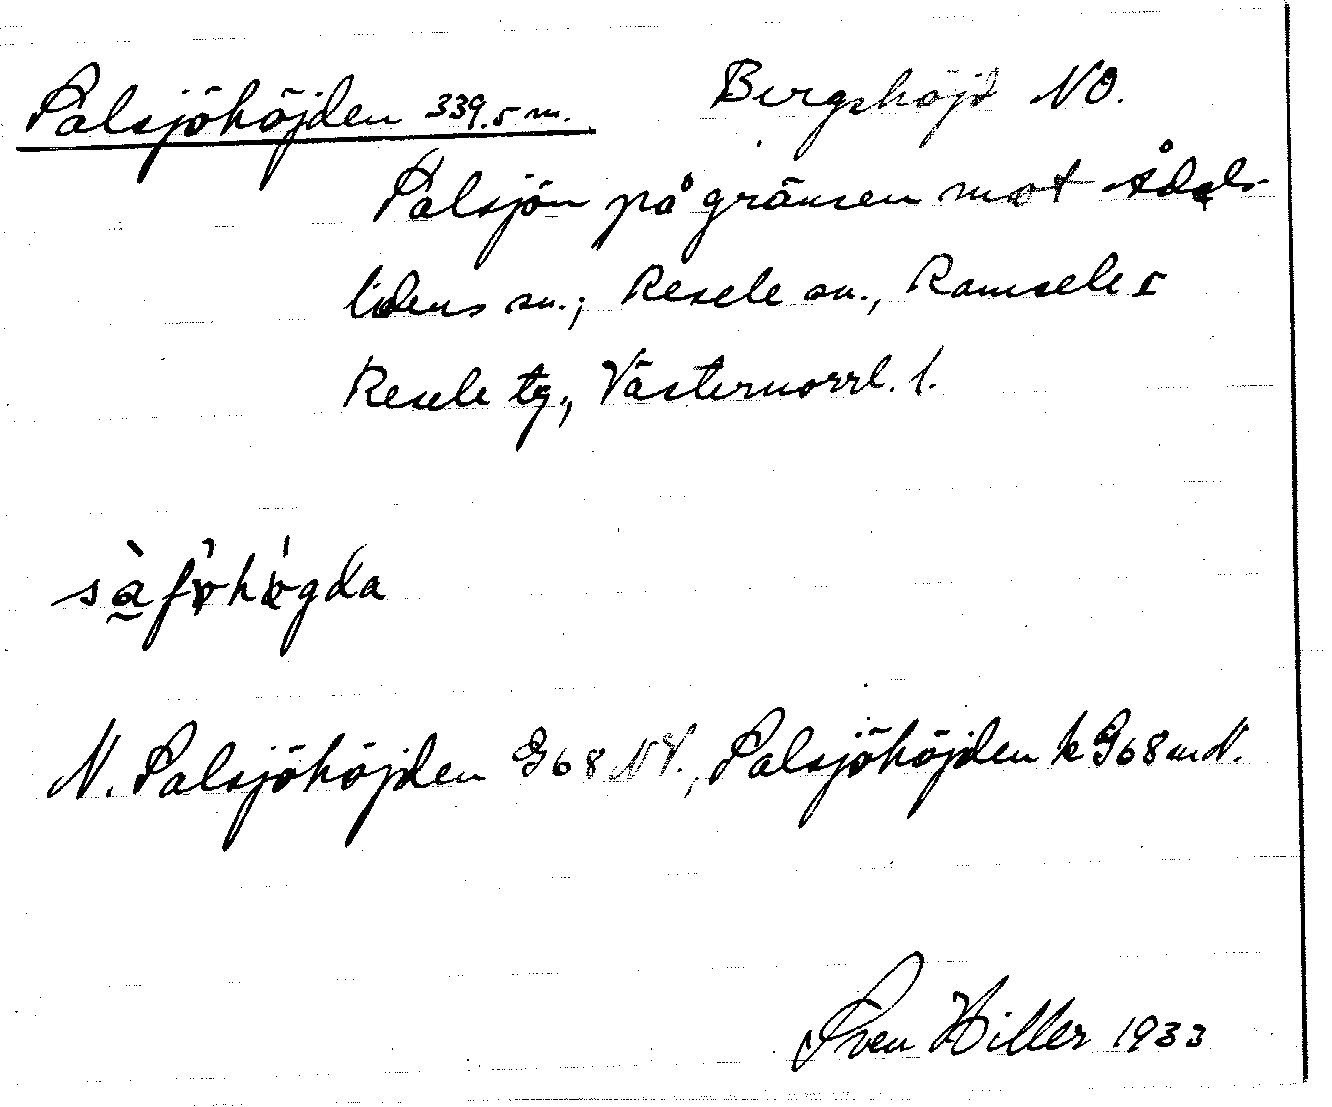 Salsjöhöjden 339.5 m. Bergshöjd NO.
Salsjön på gränsen mot Ådals-
lidens sn., Resele sn., Ramsele
Resele tg., Västernorrl. l.
N. Salsjöhöjden G68 NV., Salsjöhöjden k G68 m N.
Sven Hiller 1933